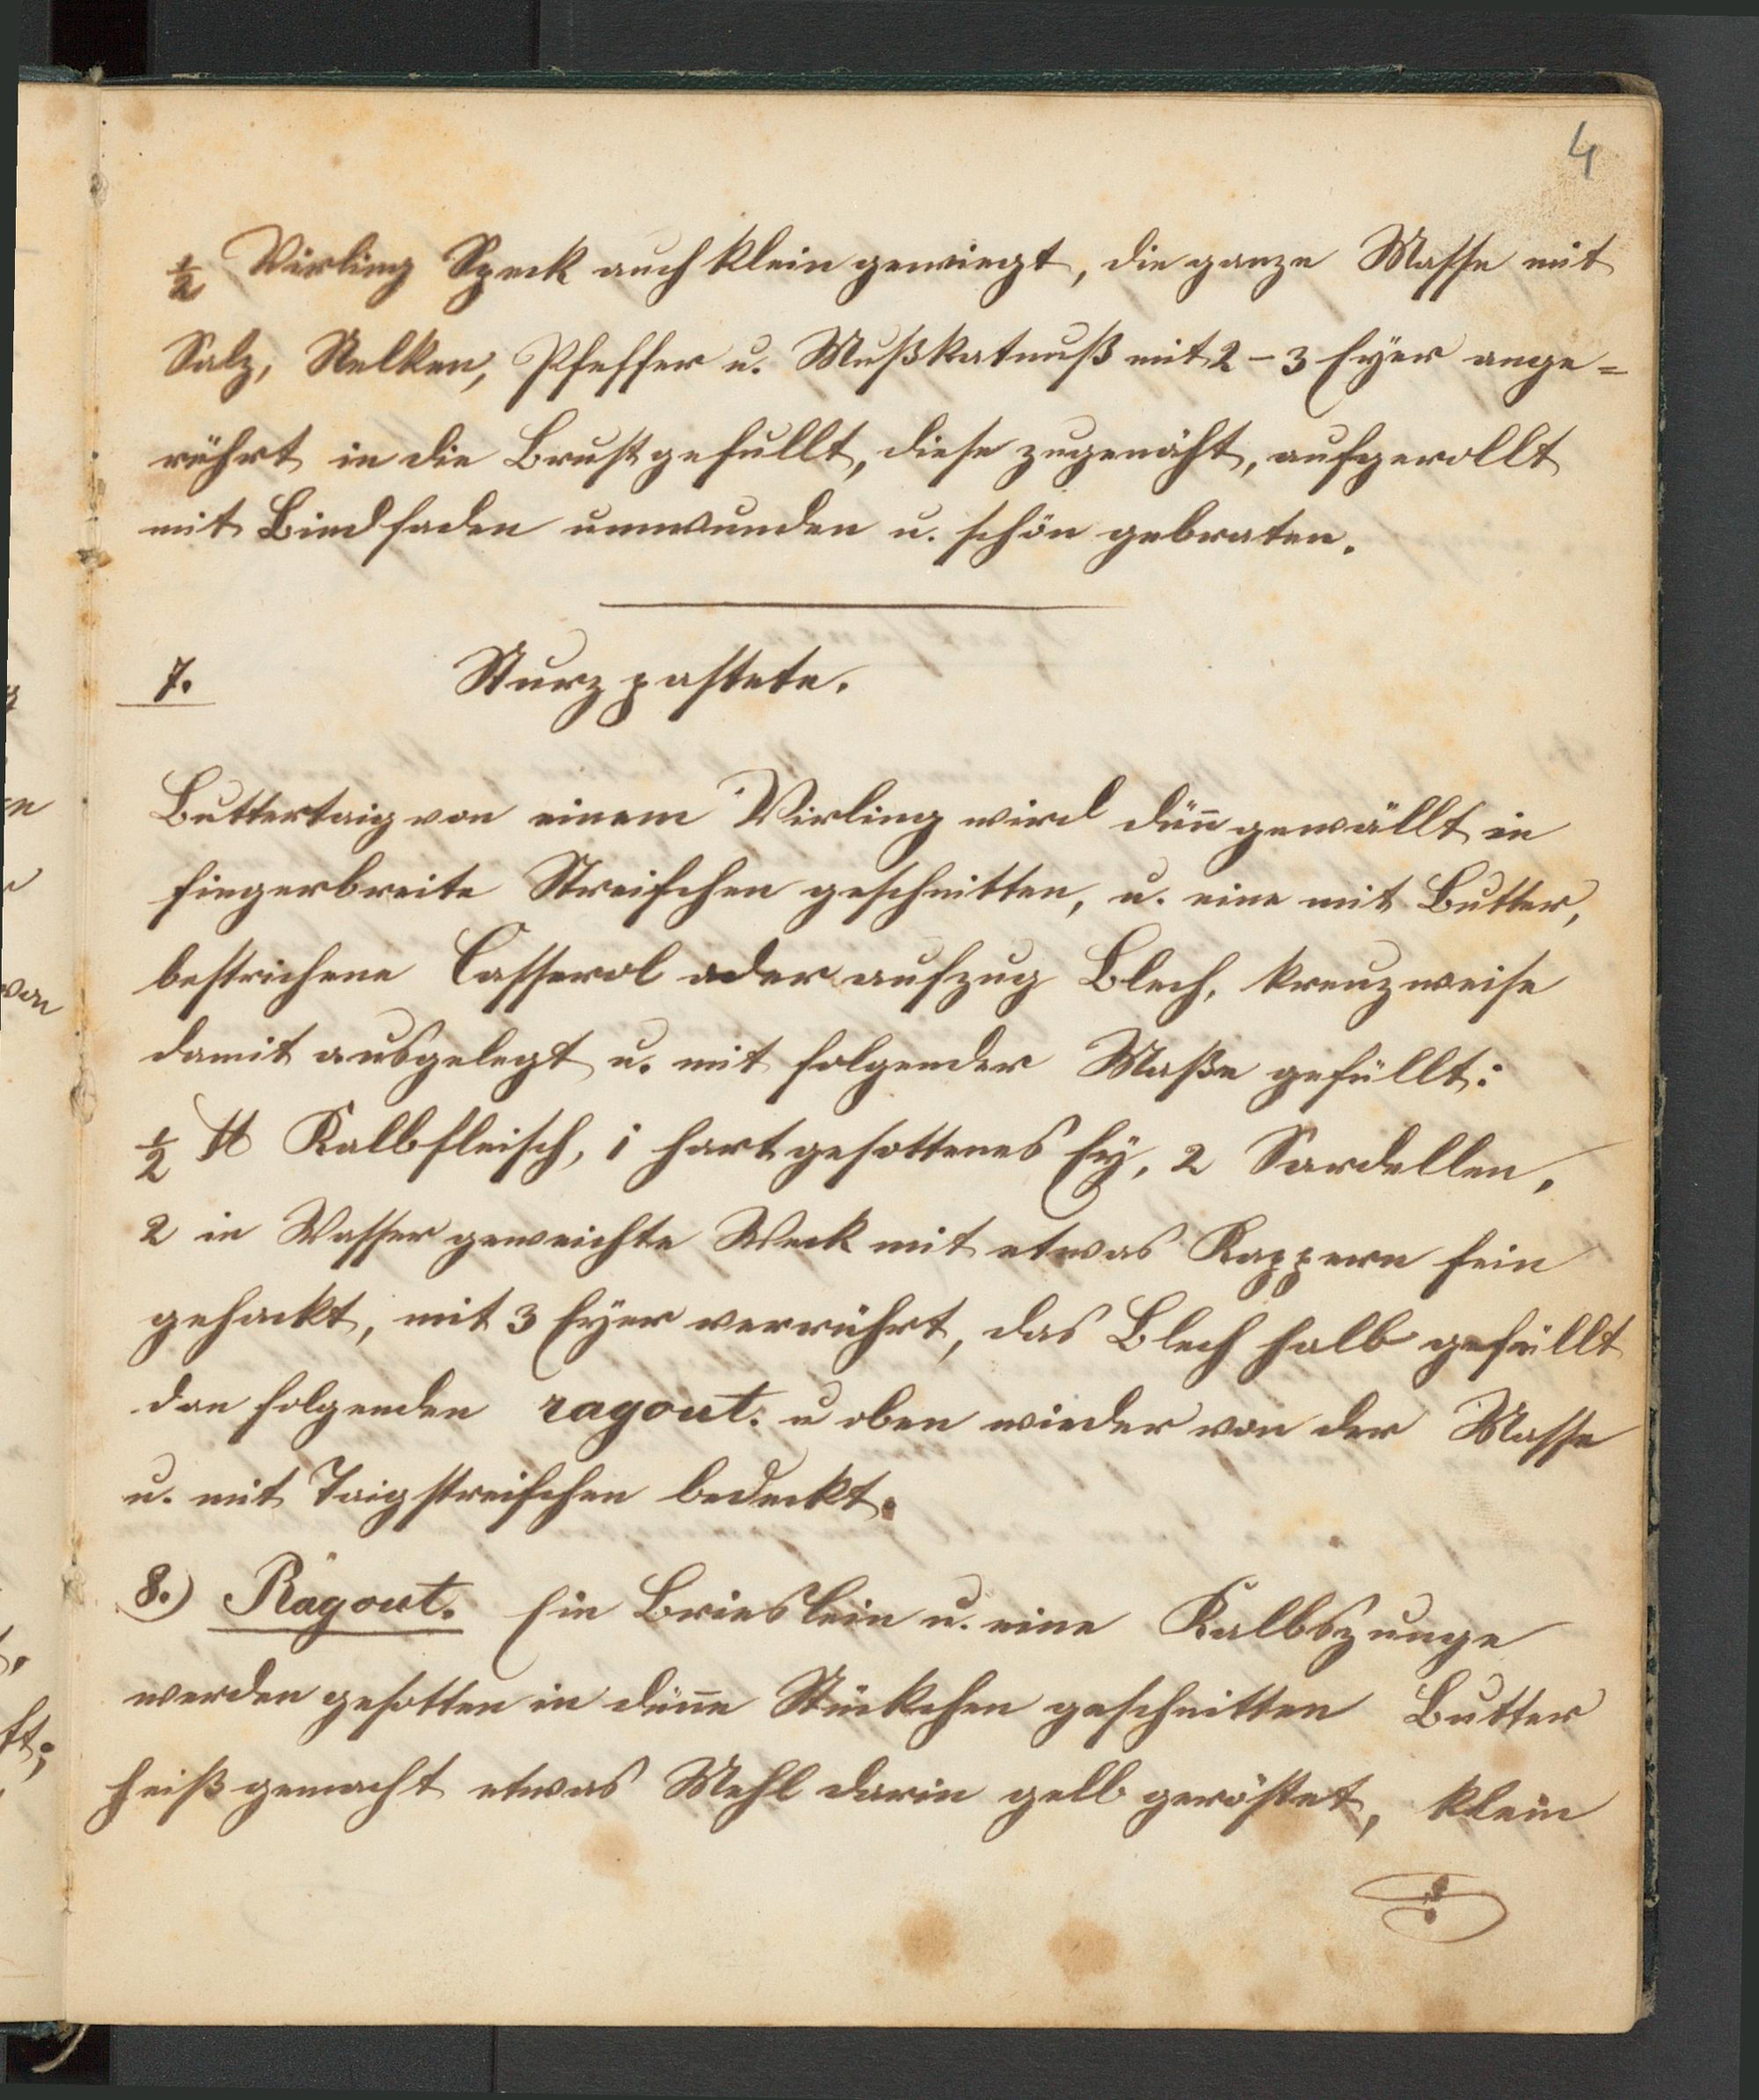 4
½ Virling Speck auch klein gewiegt, die ganze Masse mit
Salz, Nelken, Pfeffer u. Mußkatnuß mit 2 – 3 Eyer ange=
rührt in die Brust gefullt, diese zugenäht, aufgerollt
mit Bindfaden umwunden u. schön gebraten.
7. Sturzpastete.
Buttertaig von einem Virling wird dün̄ gewällt in
fingerbreite Streifchen geschnitten, u. eine mit Butter,
bestrichene Casserol oder aufzug Blech, kreuzweise
damit ausgelegt u. mit folgender Maße gefüllt:
½ ℔ Kalbfleisch, 1 hart gesottenes Ey, 2 Sardellen,
2 in Wasser geweichte Weck mit etwas Kappern fein
gehackt, mit 3 Eyer verrührt, das Blech halb gefüllt
dan folgenden ragout. u oben wieder von der Masse
u. mit Taigstreifchen bedeckt.
8.) Ragout. Ein Brieslein u. eine Kalbszunge
werden gesotten in dün̄e Stückchen geschnitten Butter
heiß gemacht etwas Mehl darin gelb geröstet, klein